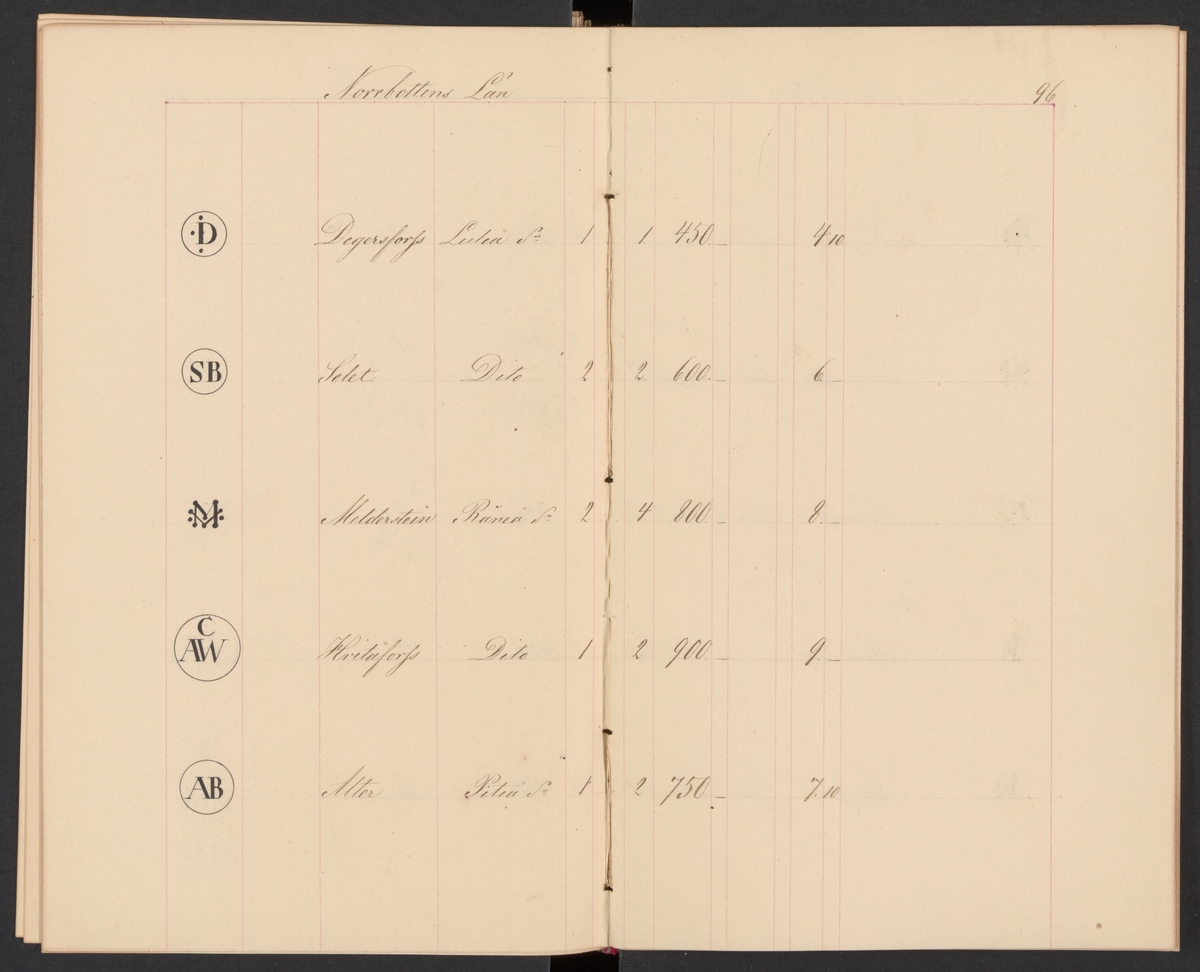 Norrbottens Län 96
D Degersforss Luleå Sn 1 1 450 _ 4 10
SB Selet Dito 2 2 600 _ 6 _
M Melderstein Råneå Sn 2 4 800 _ 8 _
C
AW Hvitåforss Dito 1 2 900 _ 9 _
AB Alter Piteå Sn 1 2 750 _ 7 10